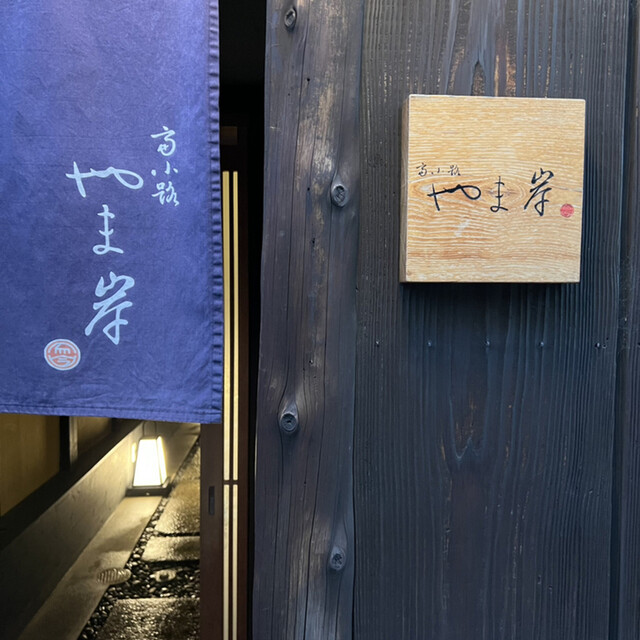 富小路
やま岸
富小路
やま岸